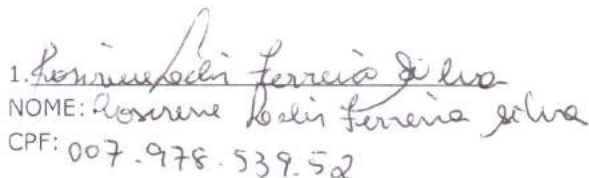 1. Rosirene Ferreira Silva
NOME: Rosirene Ferreira Silva
CPF: 007.978.539.52